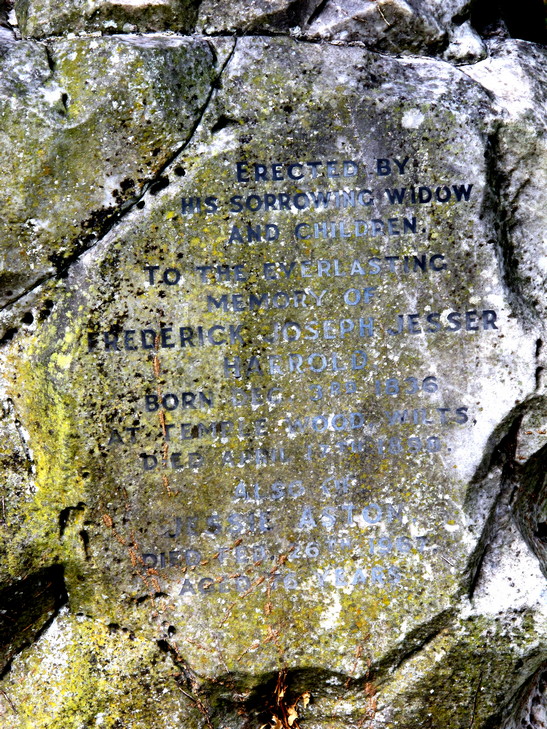 ERECTED BY
HIS SORROWING WIDOW
AND CHILDREN.
TO THE EVERLASTING
MEMORY OF
FREDERICK JOSEPH JESSER
HARROLD
BORN DEC. 3RD 1836
AT TEMPLE WOOD, WILTS
DIED APRIL 17TH
ALSO OF
JESSIE ASTON
DIED FEB. 26TH
AGED 76 YEARS